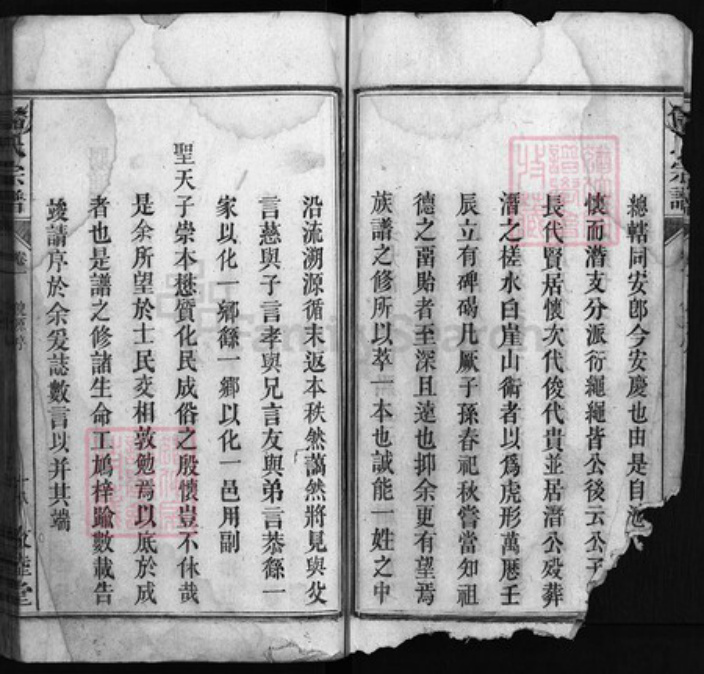 總轄同安郎今安慶也由是自池
懷而潛支分派衍繩繩皆公後云公子
長代賢居懷次代俊代貴並居潛公歿葬
潛之槎水白崖山術者以為虎形萬厯壬
辰立有碑碣凡厥子孫春祀秋嘗當知祖
德之畱貽者至深且遠也抑余更有望焉
族譜之修所以萃一本也誠能一姓之中
沿流溯源循末返本秩然藹然將見與父
言慈與子言孝與兄言友與弟言恭繇一
家以化一鄉繇一鄉以化一邑用副
聖天子崇本懋質化民成俗之殷懷豈不休哉
是余所望於士民交相敦勉焉以底於成
者也是譜之修諸生命工鳩梓踰數載告
竣請序於余爰誌數言以并其端
氏宗譜
卷
FamilySearch